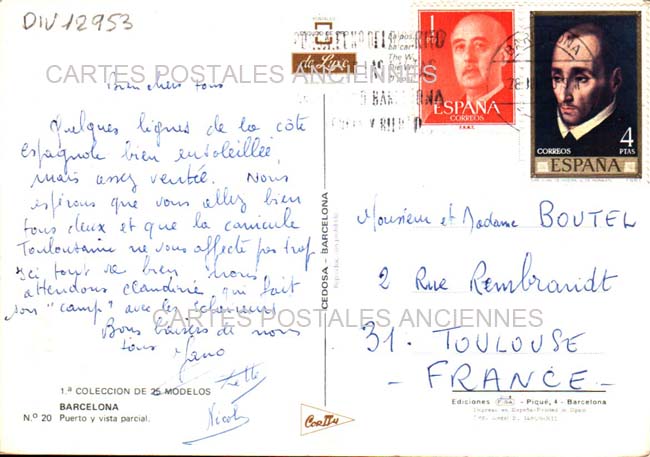 DIV 12953
CARTES POSTALES ANCIENNES
Bien chers tous
Quelques lignes de la côte
espagnole bien ensoleillée,
mais assez ventée. Nous
espérons que vous allez bien
tous deux et que la canicule
Toulousaine ne vous affecte pas trop
Ici tout va bien nous
attendons Claudine qui fait
son "camp" avec les
Bons baisers de nous
tous
Nicole
1.ª COLECCION DE 25 MODELOS
BARCELONA
N.º 20 Puerto y vista parcial.
CEDOSA - BARCELONA
de Luxe
1
ESPAÑA
CORREOS
F.N.M.T.
BARCELONA
CORREOS
4
PTAS
ESPAÑA
Monsieur et Madame BOUTEL
2 Rue Rembrandt
CARTES POSTALES ANCIENNES
31. TOULOUSE
- FRANCE -
Ediciones - Piqué, 4 - Barcelona